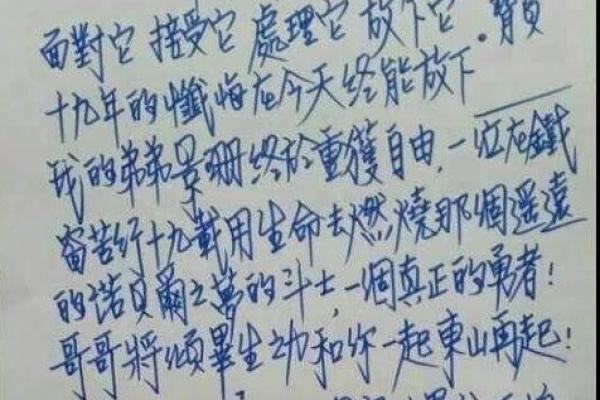 面對它 接受它 處理它 放下它.背負
十九年的懺悔在今天终能放下——
我的弟弟景珊终於重獲自由,一位在鐵
窗苦行十九載用生命去燃燒那個遥遠
的诺貝爾之夢的斗士,一個真正的勇者!
哥哥將傾畢生之功和你一起東山再起!